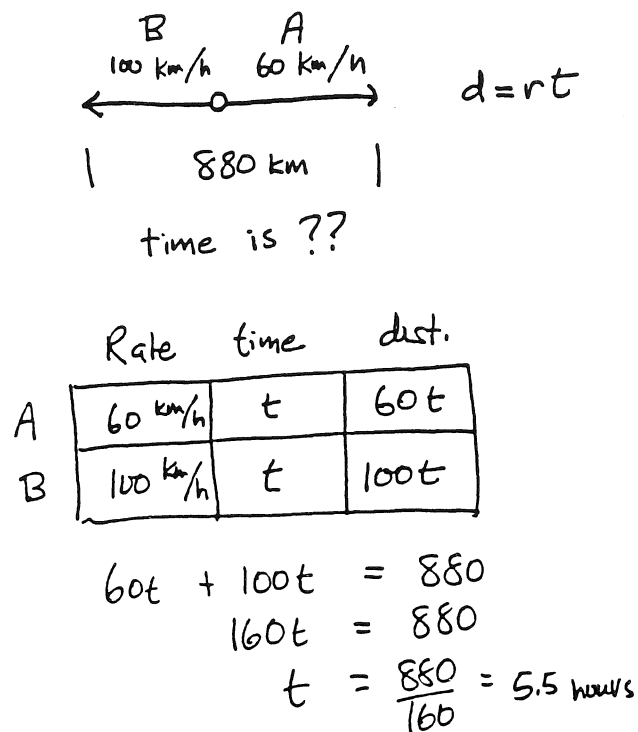 B A
100 km/h 60 km/h
d = rt
880 km
time is ??
Rate time dist.
A 60 km/h t 60t
B 100 km/h t 100t
60t + 100t = 880
160t = 880
t = 880/160 = 5.5 hours